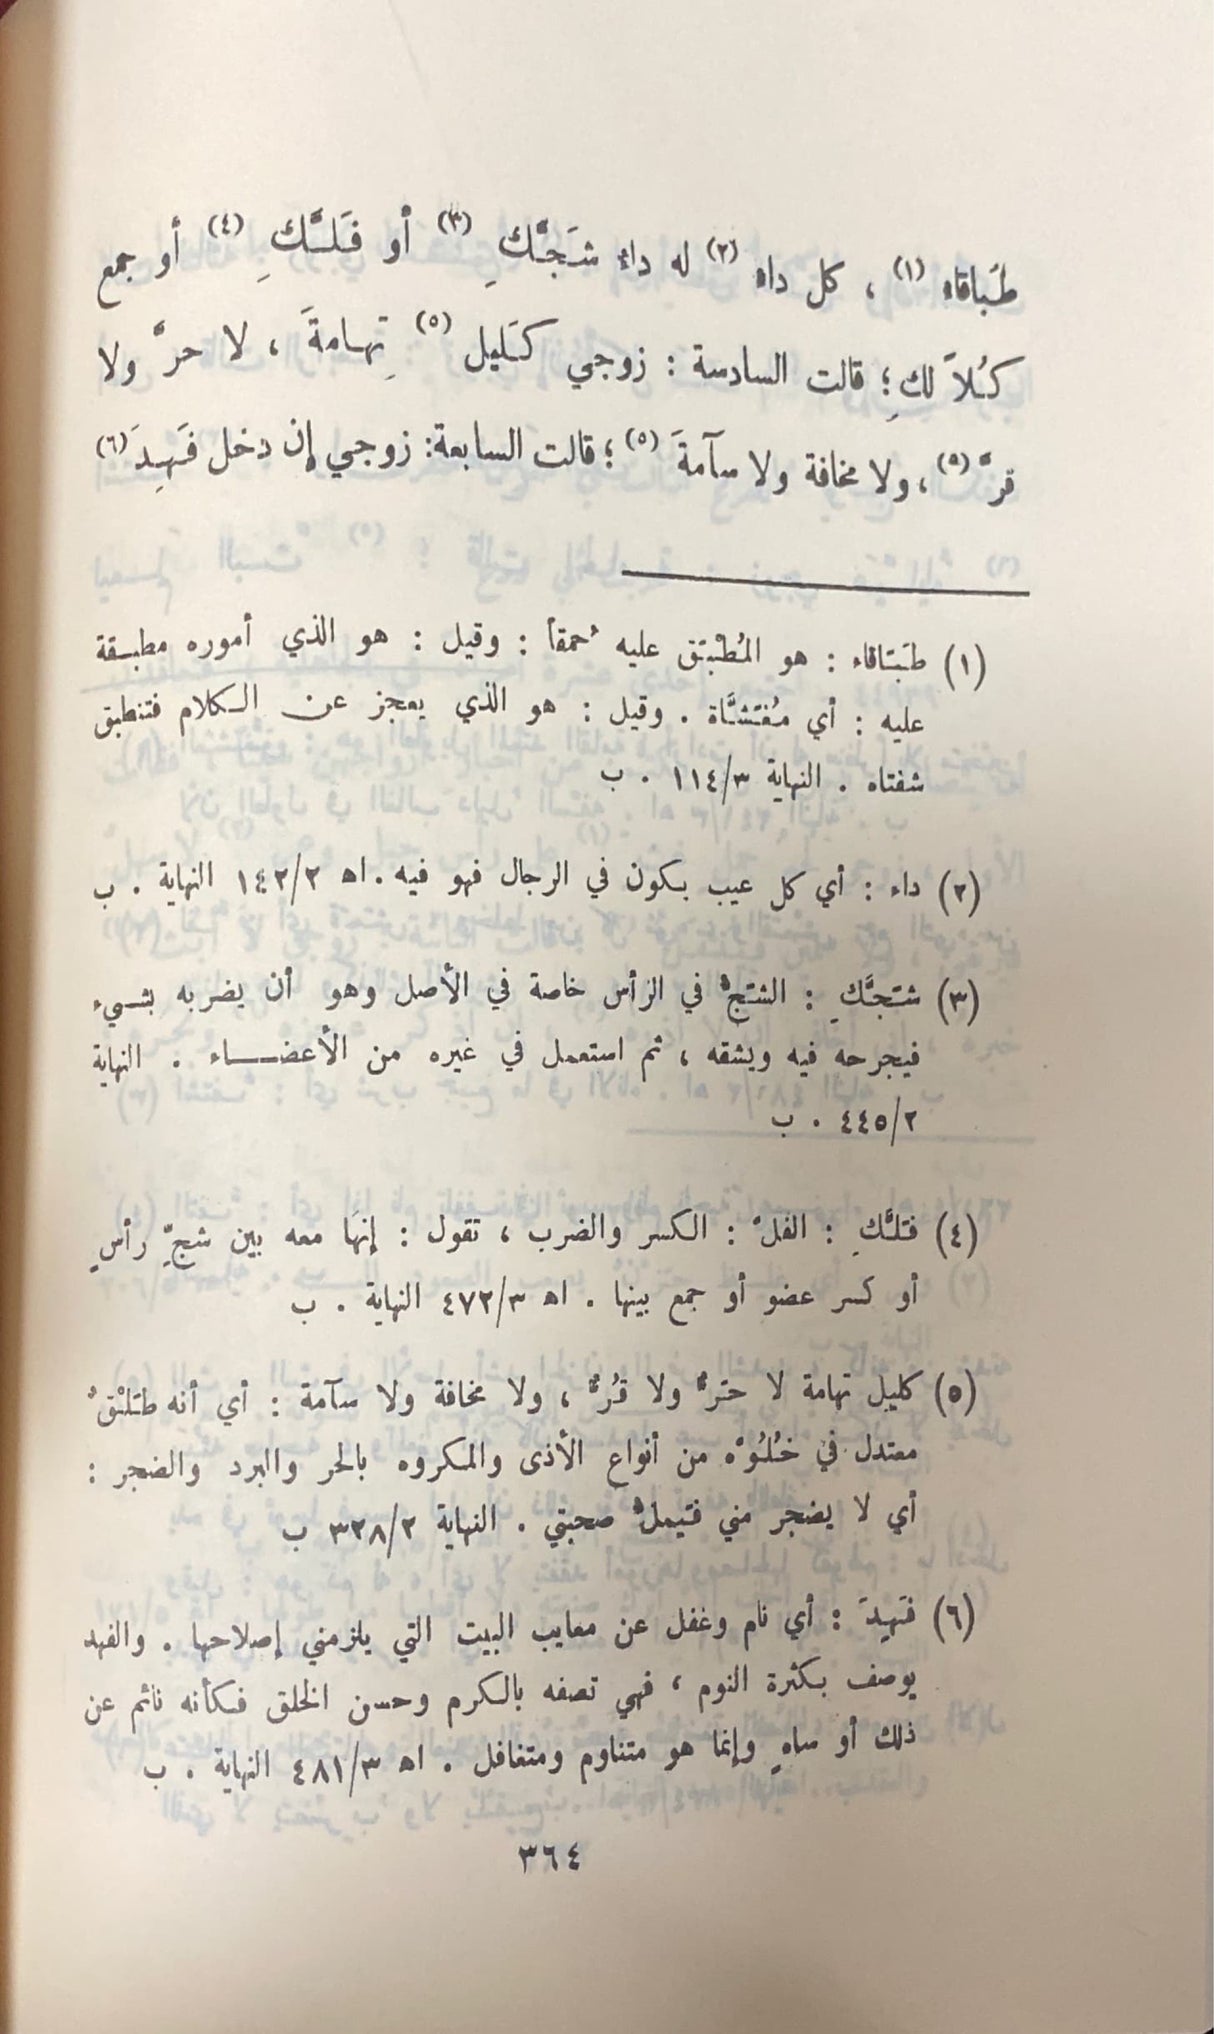 طَباقاه (١) ، كل داه (٢) له داء شَجَّكِ (٣) أو فَلَّكِ (٤) أو جمع
كُلاَّ لكِ؛ قالت السادسة : زوجي كَليل (٥) تِهامةَ ، لا حرَّ ولا
قرَّ (٥) ، ولا مخافة ولا سآمةَ (٥) ؛ قالت السابعة: زوجي إن دخل فَهِدَ (٦)
(١) طَبَاقاء : هو المُطْبَق عليه حُمقاً : وقيل : هو الذي أموره مطبقة
عليه : أي مُغَشَّاة . وقيل : هو الذي يعجز عن الكلام فتنطبق
شفتاه . النهاية ١١٤/٣ . ب
(٢) داء : أي كل عيب يكون في الرجال فهو فيه . اه ١٤٢/٢ النهاية . ب
(٣) شَجَّكِ : الشَجُّ في الرأس خاصة في الأصل وهو أن يضربه بشيء
فيجرحه فيه ويشقه ، ثم استعمل في غيره من الأعضاء . النهاية
٤٤٥/٢ . ب
(٤) فَلَّكِ : الفلّ : الكسر والضرب ، تقول : إنها معه بين شجِّ رأسٍ
أو كسر عضو أو جمع بينها . اه ٤٧٢/٣ النهاية . ب
(٥) كليل تهامة لا حَرٌّ ولا قُرٌّ ، ولا مخافة ولا سآمة : أي أنه طَلْقٌ
معتدل في خُلُوّه من أنواع الأذى والمكروه بالحر والبرد والضجر :
أي لا يضجر مني فَيملُّ صحبتي . النهاية ٣٢٨/٢ ب
(٦) فَهِدَ : أي نام وغفل عن معايب البيت التي يلزمني إصلاحها . والفهد
يوصف بكثرة النوم ، فهي تصفه بالكرم وحسن الخلق فكأنه نائم عن
ذلك أو ساهٍ وإنما هو متناوم ومتغافل . اه ٤٨١/٣ النهاية . ب
٣٦٤